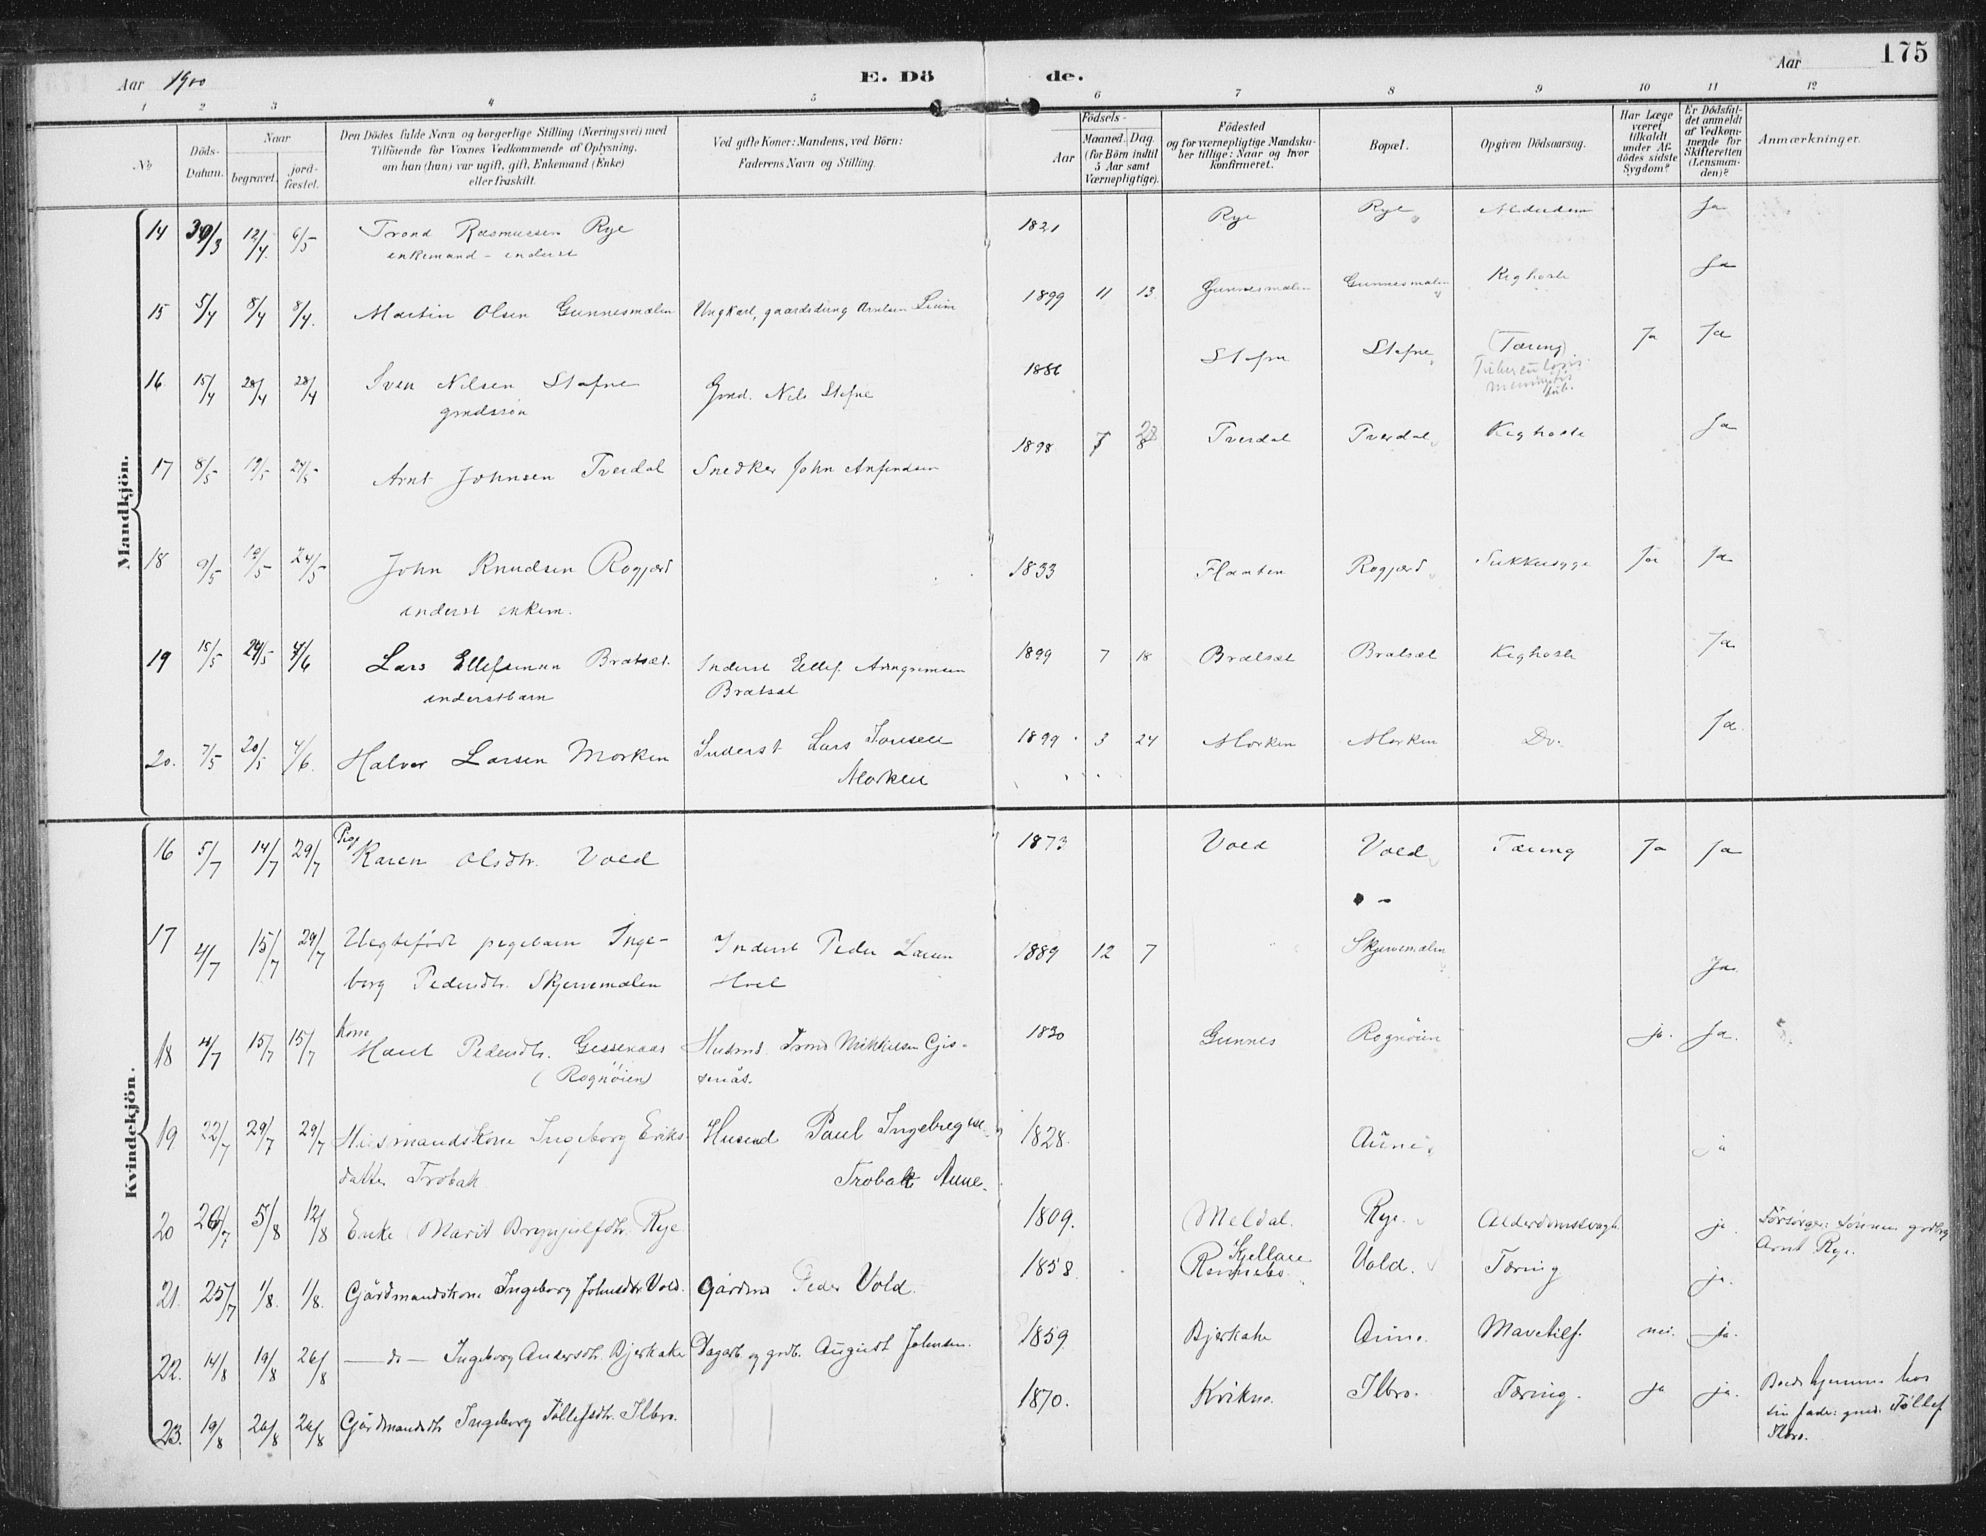 Aar 1900
E. Dö de.
Aar
175
1 2 3 4 5 6 7 8 9 10 11 12
No
Döds-Datum.
Naar
begravet.
jord-fæstet.
Den Dödes fulde Navn og borgerlige Stilling (Næringsvei) med
Tilföiende for Voxnes Vedkommende af Oplysning,
om han (hun) var ugift, gift, Enkemand (Enke)
eller fraskilt.
Ved gifte Koner: Mandens, ved Börn:
Faderens Navn og Stilling.
Födsels-
Aar
Maaned. Dag.
(for Börn indtil
5 Aar samt
Værnepligtige).
Födested
og for værnepligtige Mandskaber tillige: Naar og hvor
konfirmeret.
Bopæl.
Opgiven Dödsaarsag.
Har Læge
været
tilkaldt
under Afdödes sidste
Sygdom?
Er Dödsfaldet anmeldt
af Vedkommende for
Skifteretten
(Lensmanden)?
Anmærkninger.
Mandkjön.
14 30/3 12/4 6/5 Trond Rasmussen Rye 1821 Rye Rye Ja
enkemand - inderst
15 5/4 8/4 8/4. Martin Olsen Gunnesmælen Ungkarl, gaardsdreng 1899 11 13 Gunnesmælen Gunnesmælen Kighoste Ja
16 15/4 28/4 28/4 Sven Nilsen Stafne Gmd. Nils Stafne 1886 Stafne Stafne (Tæring) Ja Ja
gmdssøn
Tuberculosis
meningitis
tub.
17 8/5 19/5 24/5 Arnt Johnsen Tverdal Snedker John Anfindsen 1898 7 28 Tverdal Tverdal Kighoste Ja
18 9/5 19/5 24/5 John Knudsen Rogjerd 1833 Flaaten Rogjerd Sukkersyge Ja Ja
inderst enkem.
19 15/5 24/5 4/6 Lars Ellefsen Bratset. Inderst Ellef Arngrimsen 1899 7 18 Brætsæt Bratsæt Kighoste Ja
inderstbarn Bratsæt
20. 7/5 20/5 4/6. Halvor Larsen Morken Inderst Lars Jonsen 1899 3 24 Morken Morken Do. Ja
Morken
Kvindekjön.
16 5/7 14/7 29/7 Pig Karen Olsdtr. Vold 1873 Vold Vold Tæring Ja Ja
17 4/7 15/7 29/7 Uegtefödt pigebarn Inge- Inderst Peder Larsen 1889 12 7 Skjervemælen Ja
borg Pedersdtr. Skjervemælen Hoel
18 4/7 15/7 15/7 Kone Marit Pedersdtr. Gissenaas Husmd Trond Mikkelsen Gis- 1830 Gunnes Rognöien ja. Ja.
(Rognöien) senås.
19 22/7 29/7 29/7 Husmandskone Ingeborg Eriks- Husmd Paul Ingebregtsen 1828. Aune. ja
datter Trobak Trobak Aune.
20 26/7 5/8 12/8 Enke Marit Brynjulfsdtr. Rye 1809. Meldal. Rye. Alderdomssvagh. ja. Forsörger: sönnen grdbrg
Arnt Rye.
21. 25/7 1/8. 1/8. Gårdmandskone Ingeborg Johnsdtr. Vold. Gårdmd Peder Vold. 1858. Kjellare Rennebo. Vold. Tæring ja.
22. 14/8 19/8 26/8 — do — Ingeborg Andersdtr. Bjerkake Dagarb. og grdb. August Johnsen. 1859. Bjerkake Aune. Mavetilf. nei. ja.
23. 19/8 26/8 26/8 Gårdmandsdtr Ingeborg Tøllefsdtr. Ilbro. 1870. Kvikne. Ilbro. Tæring. ja ja. hjemme hos
sin fader gmd. Töllef
Ilbro.